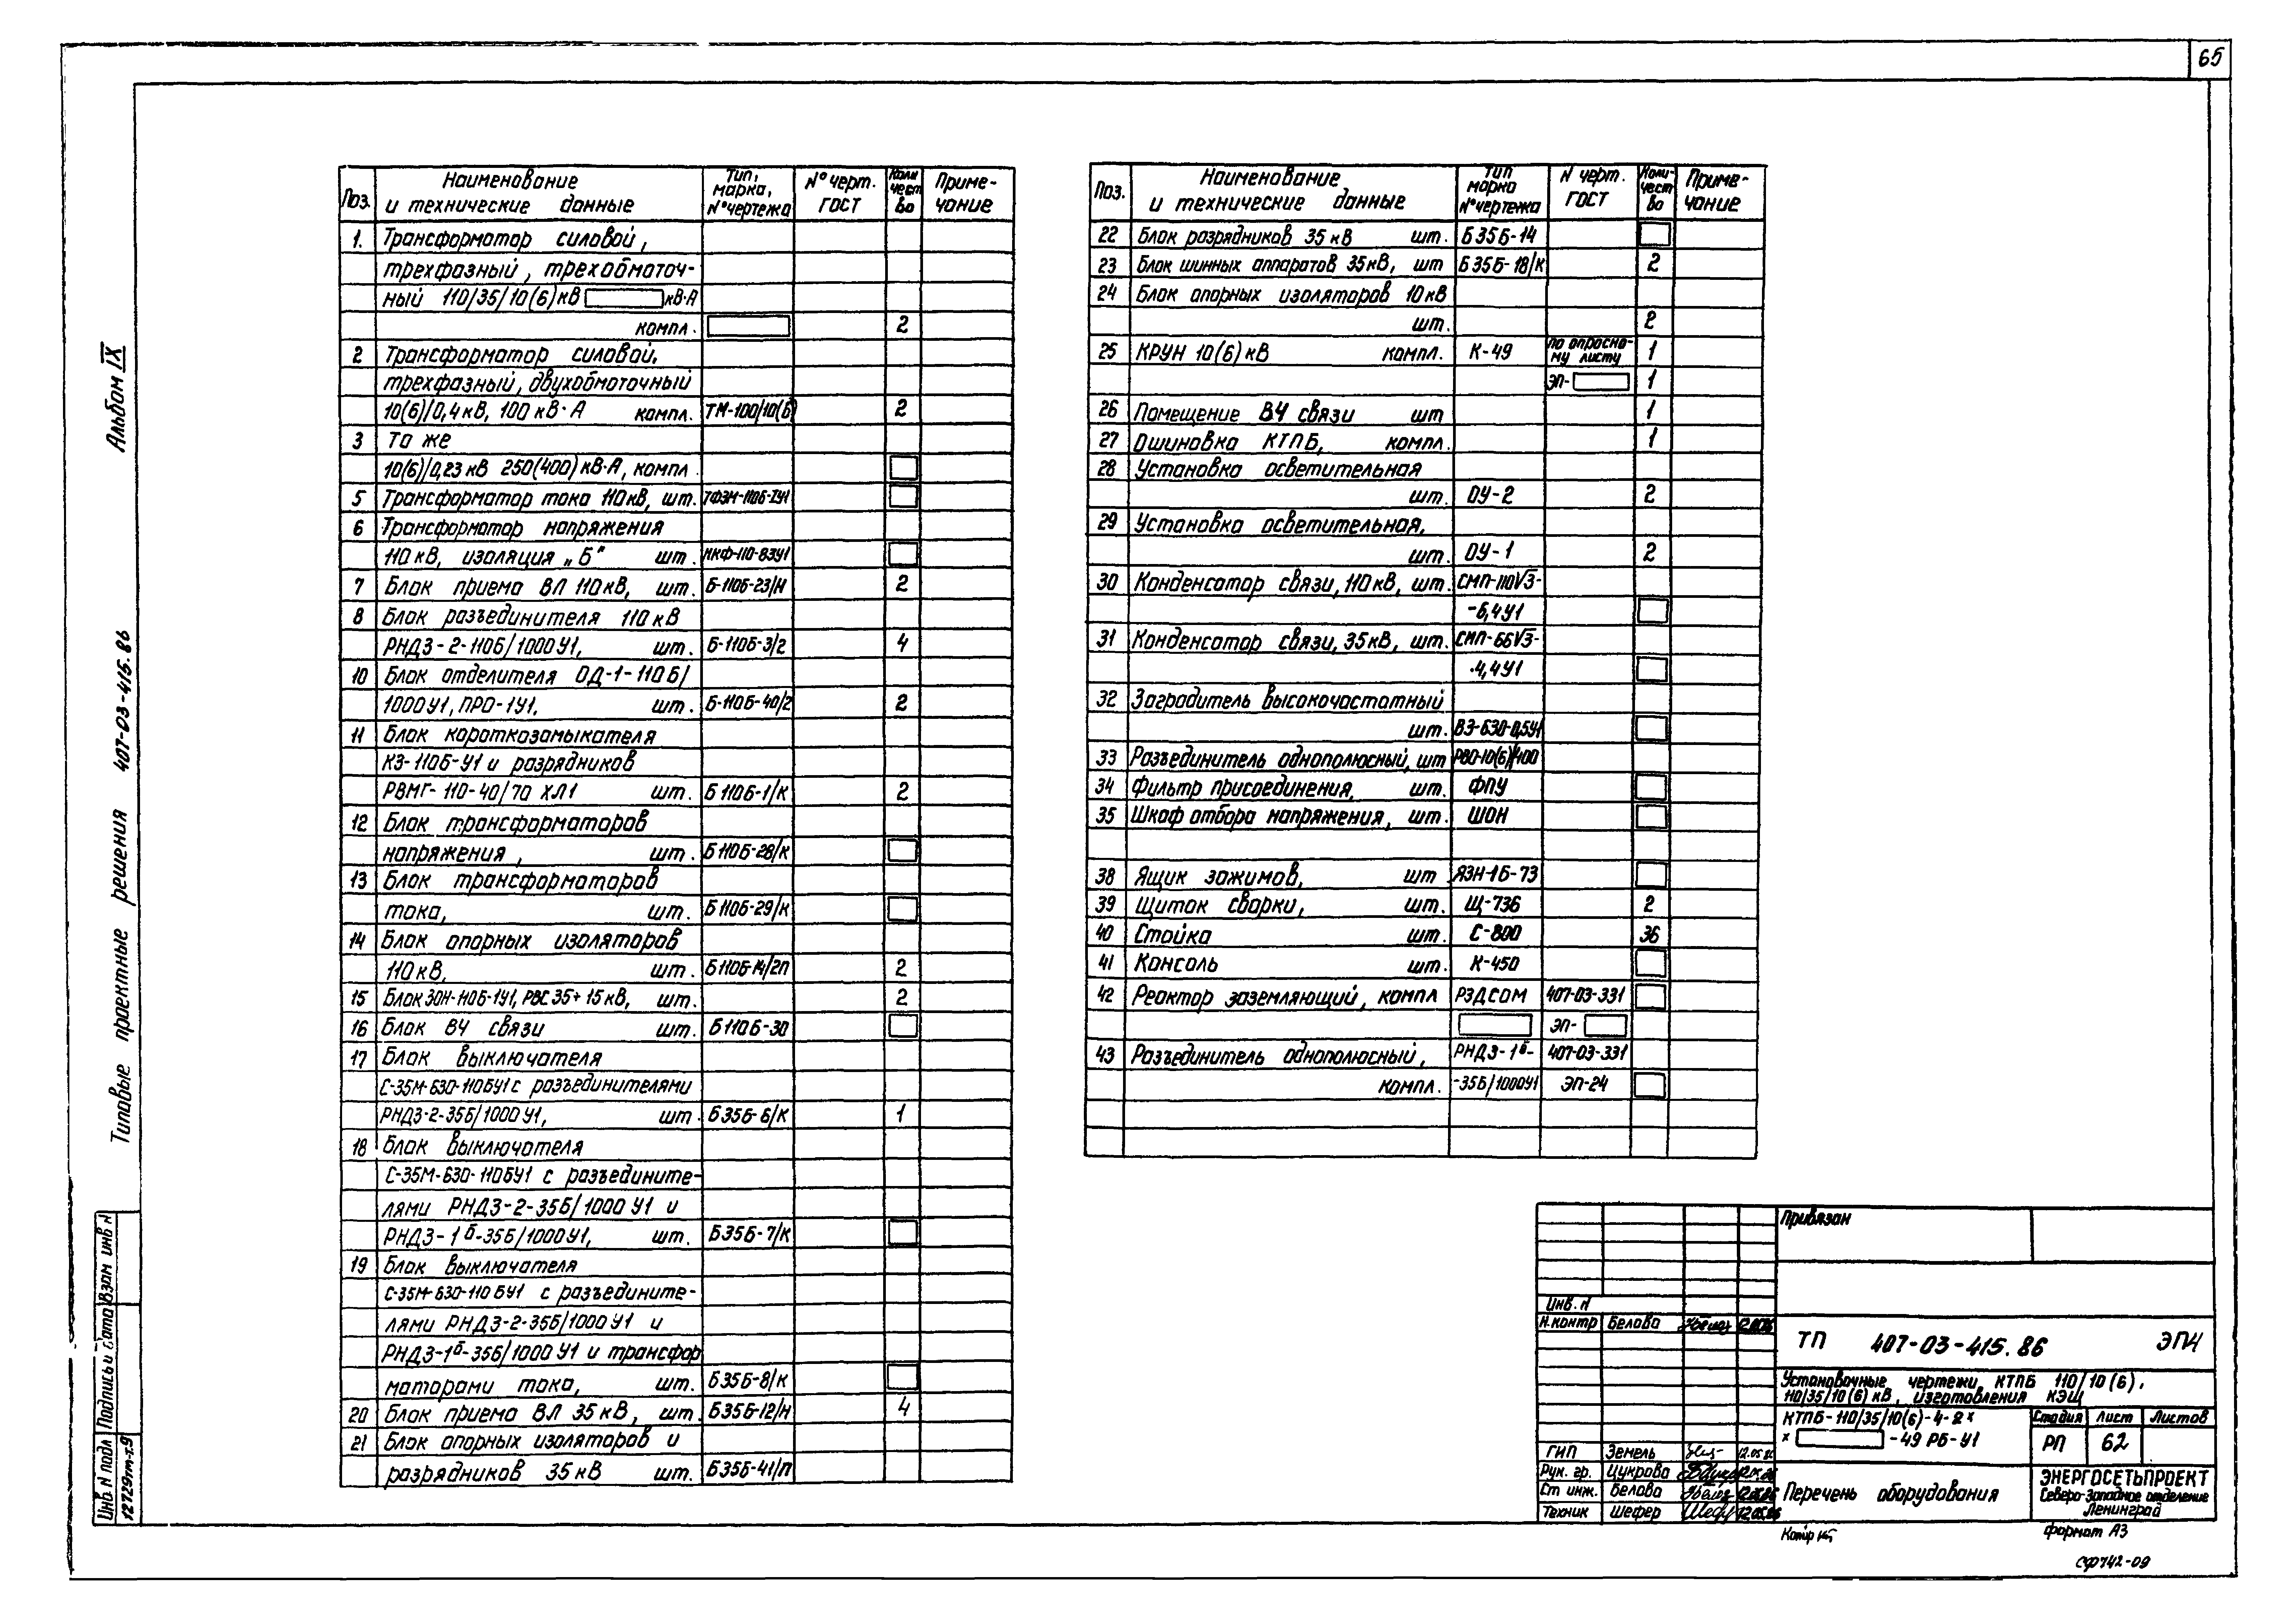 65
Альбом IX
Типовые проектные решения 407-03-415.86
Взам инв N
Подпись и дата
Инв. N подл
12729тм-т.9
Поз. Наименование и технические данные Тип, марка, N° чертежа N° черт. ГОСТ Коли чест во Приме- чание
1. Трансформатор силовой,
трехфазный, трехобмоточ-
ный 110/35/10(6) кВ кВ·А
компл. 2
2 Трансформатор силовой,
трехфазный, двухобмоточный
10(6)/0,4 кВ, 100 кВ·А компл. ТМ-100/10(6) 2
3 То же
10(6)/0,23 кВ 250(400) кВ·А, компл.
5 Трансформатор тока 110 кВ, шт. ТФЗМ-110Б-IУ1
6 Трансформатор напряжения
110 кВ, изоляция „Б" шт. НКФ-110-83У1
7 Блок приема ВЛ 110 кВ, шт. Б-110Б-23/Н 2
8 Блок разъединителя 110 кВ
РНДЗ-2-110Б/1000У1, шт. Б-110Б-3/2 4
10 Блок отделителя ОД-1-110Б/
1000У1, ПРО-1У1, шт. Б-110Б-40/2 2
11 Блок короткозамыкателя
КЗ-110Б-У1 и разрядников
РВМГ-110-40/70 ХЛ1 шт. Б 110Б-1/К 2
12 Блок трансформаторов
напряжения, шт. Б 110Б-28/К
13 Блок трансформаторов
тока, шт. Б 110Б-29/К
14 Блок опорных изоляторов
110 кВ, шт. Б110Б-14/2П 2
15 Блок ЗОН-110Б-1У1, РВС 35+15 кВ, шт. 2
16 Блок ВЧ связи шт. Б 110Б-30
17 Блок выключателя
С-35М-630-110БУ1 с разъединителями
РНДЗ-2-35Б/1000 У1, шт. Б 35Б-6/К 1
18 Блок выключателя
С-35М-630-110БУ1 с разъедините-
лями РНДЗ-2-35Б/1000 У1 и
РНДЗ-1б-35Б/1000У1, шт. Б35Б-7/К
19 Блок выключателя
С-35М-630-110 БУ1 с разъедините-
лями РНДЗ-2-35Б/1000 У1 и
РНДЗ-1б-35Б/1000 У1 и трансфор
маторами тока, шт. Б35Б-8/К
20 Блок приема ВЛ 35 кВ, шт. Б35Б-12/Н 4
21 Блок опорных изоляторов и
разрядников 35 кВ шт. Б35Б-41/П
Поз. Наименование и технические данные Тип марка N° чертежа N черт. ГОСТ Коли- чест во Приме- чание
22 Блок разрядников 35 кВ шт. Б 35Б-14
23 Блок шинных аппаратов 35кВ, шт Б 35Б-18/К 2
24 Блок опорных изоляторов 10 кВ
шт. 2
25 КРУН 10(6) кВ компл. К-49 по опросно- му листу 1
ЭП- 1
26 Помещение ВЧ связи шт 1
27 Ошиновка КТПБ, компл. 1
28 Установка осветительная
шт. ОУ-2 2
29 Установка осветительная,
шт. ОУ-1 2
30 Конденсатор связи, 110 кВ, шт. СМП-110√3-
-6,4У1
31 Конденсатор связи, 35 кВ, шт. СМП-66√3-
-4,4У1
32 Заградитель высокочастотный
шт. ВЗ-630-0,5У1
33 Разъединитель однополюсный, шт РВО-10(6)/400
34 Фильтр присоединения, шт. ФПУ
35 Шкаф отбора напряжения, шт. ШОН
38 Ящик зажимов, шт ЯЗН-1Б-73
39 Щиток сварки, шт. Щ-736 2
40 Стойка шт. С-800 36
41 Консоль шт. К-450
42 Реактор заземляющий, компл РЗДСОМ 407-03-331
ЭП-
43 Разъединитель однополюсный, РНДЗ-1б- 407-03-331
компл. -35Б/1000У1 ЭП-24
Привязан
Инв. N
Н.контр Белова
ТП 407-03-415.86 ЭП4
Установочные чертежи КТПБ 110/10(6),
110/35/10(6) кВ, изготовления КЭЩ
КТПБ-110/35/10(6)-4-2х
х -49 РБ-У1
Стадия Лист Листов
РП 62
ГИП Земель 12.05.86
Рук. гр. Цукрова
Ст инж. Белова
Техник Шефер 12.05.86
Перечень оборудования
ЭНЕРГОСЕТЬПРОЕКТ
Северо-Западное отделение
Ленинград
Формат А3
СФ742-09